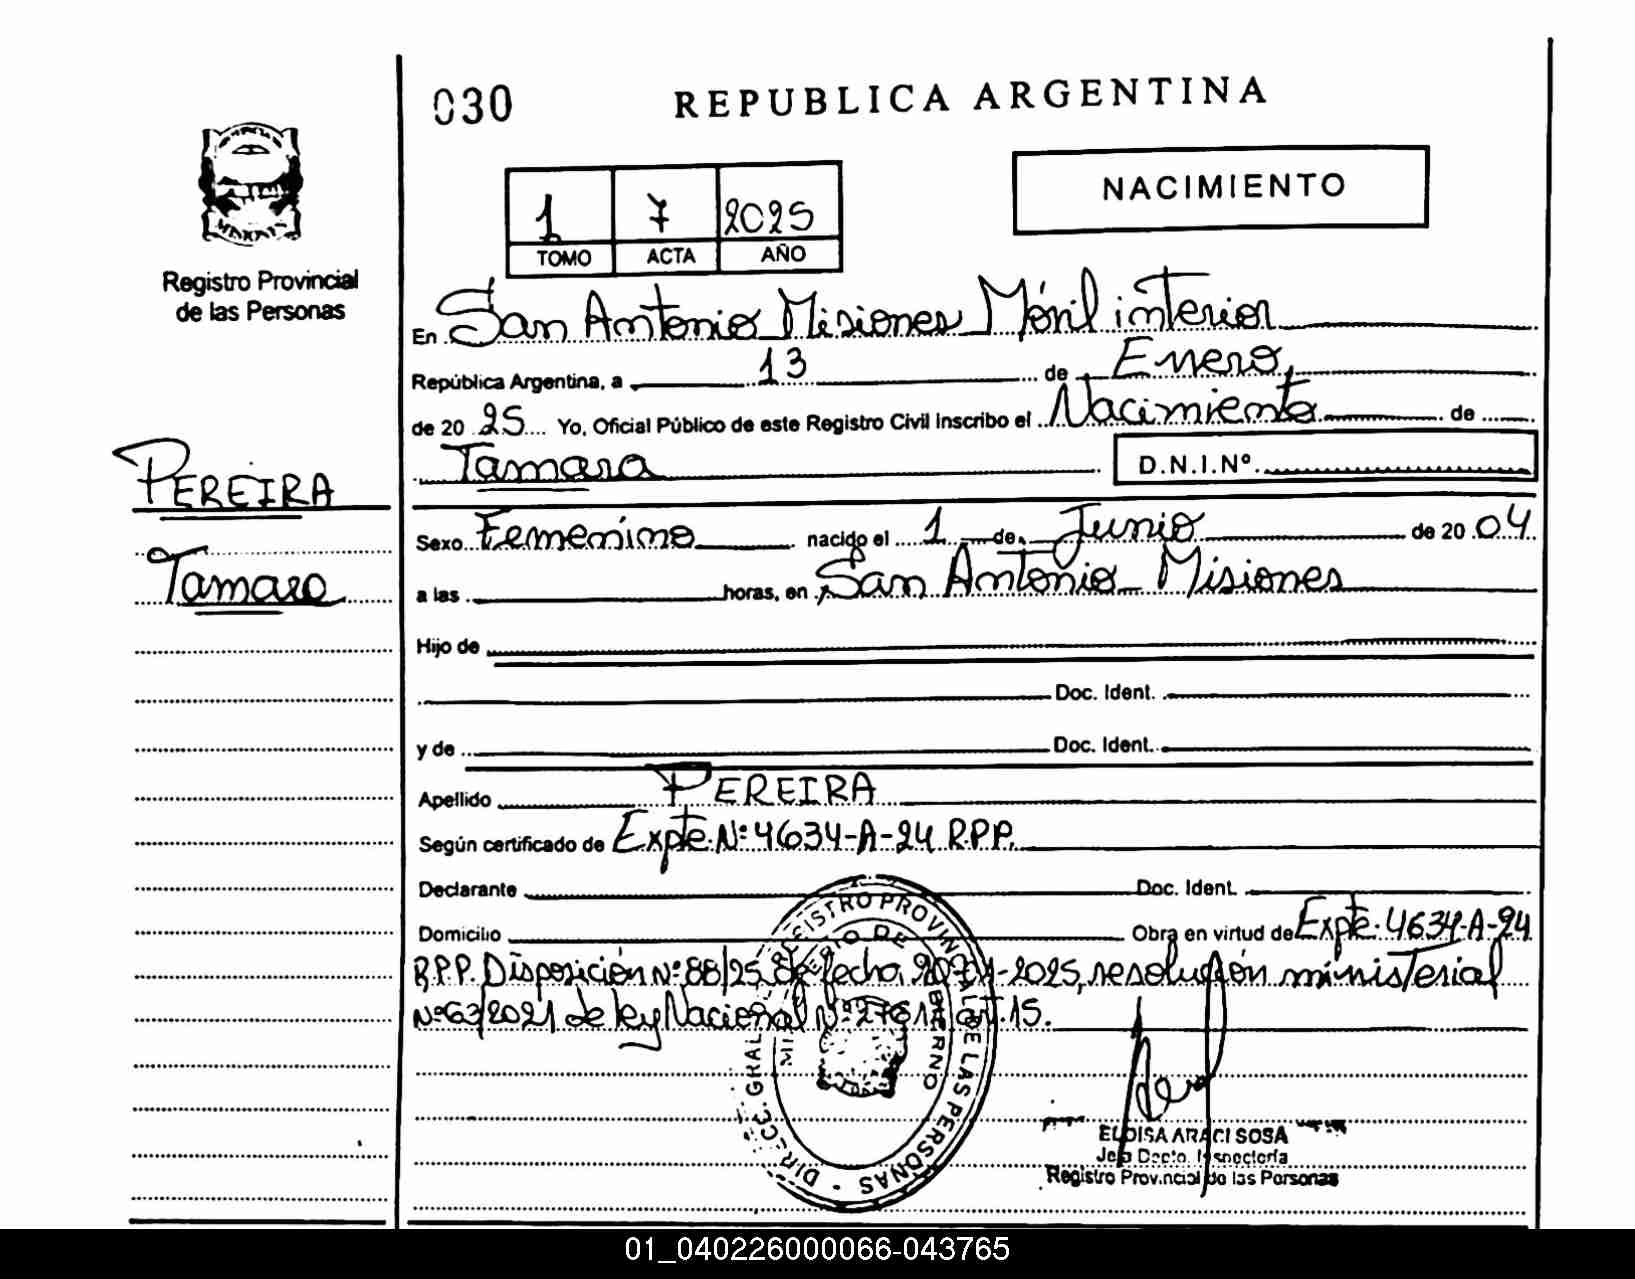 030
REPUBLICA ARGENTINA
NACIMIENTO
1 7 2025
TOMO ACTA AÑO
Registro Provincial
de las Personas
En San Antonio Misiones Móvil interior
República Argentina, a 13 de Enero,
de 20 25 Yo, Oficial Público de este Registro Civil Inscribo el Nacimiento de
Tamara D.N.I.Nº.
PEREIRA
Tamara
Sexo Femenino nacido el 1 de Junio de 20 04
a las horas, en San Antonio Misiones
Hijo de
Doc. Ident.
y de Doc. Ident.
Apellido PEREIRA
Según certificado de Expte. Nº 4634-A-24 R.P.P.
Declarante Doc. Ident.
Domicilio Obra en virtud de Expte. 4634-A-24
R.P.P. Disposición Nº 88/25 de fecha -2025, resolución ministerial
Nº 63/2021 de ley Nacional Nº art. 15.
DIRECC. GRAL. DE REGISTRO PROVINCIAL DE LAS PERSONAS -
MINISTERIO DE GOBIERNO
ELOISA ARACI SOSA
Jefa Depto. Inspectoría
Registro Provincial de las Personas
01_040226000066-043765